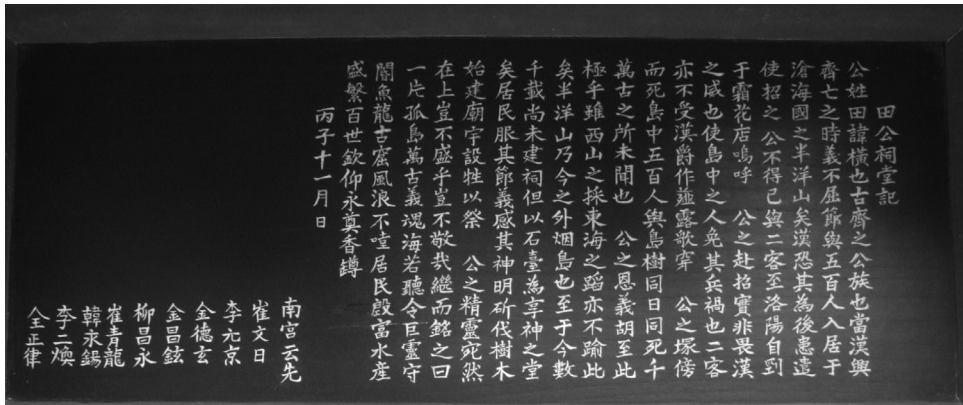 田公祠堂記
公姓田諱橫也古齊之公族也當漢興
齊亡之時義不屈節與五百人入居于
滄海國之半洋山矣漢恐其為後患遣
使招之 公不得已與二客至洛陽自刭
于霜花店嗚呼 公之赴招實非畏漢
之威也使島中之人免其兵禍也二客
亦不受漢爵作薤露歌穿 公之塚傍
而死島中五百人與島樹同日同死千
萬古之所未聞也 公之恩義胡至此
極乎雖西山之採東海之蹈亦不踰此
矣半洋山乃今之外烟島也至于今數
千載尚未建祠但以石臺為享神之堂
矣居民服其節義感其神明斫伐樹木
始建廟宇設牲以祭 公之精靈死然
在上豈不盛乎豈不敬哉繼而銘之曰
一片孤島萬古義魂海若聽令巨靈守
閽魚龍古窟風浪不喧居民殷富水產
盛繁百世欽仰永奠香罇
丙子十一月日
南宮云先
崔文日
李元京
金德玄
金昌鉉
柳昌永
崔青龍
韓永錫
李二煥
全正律